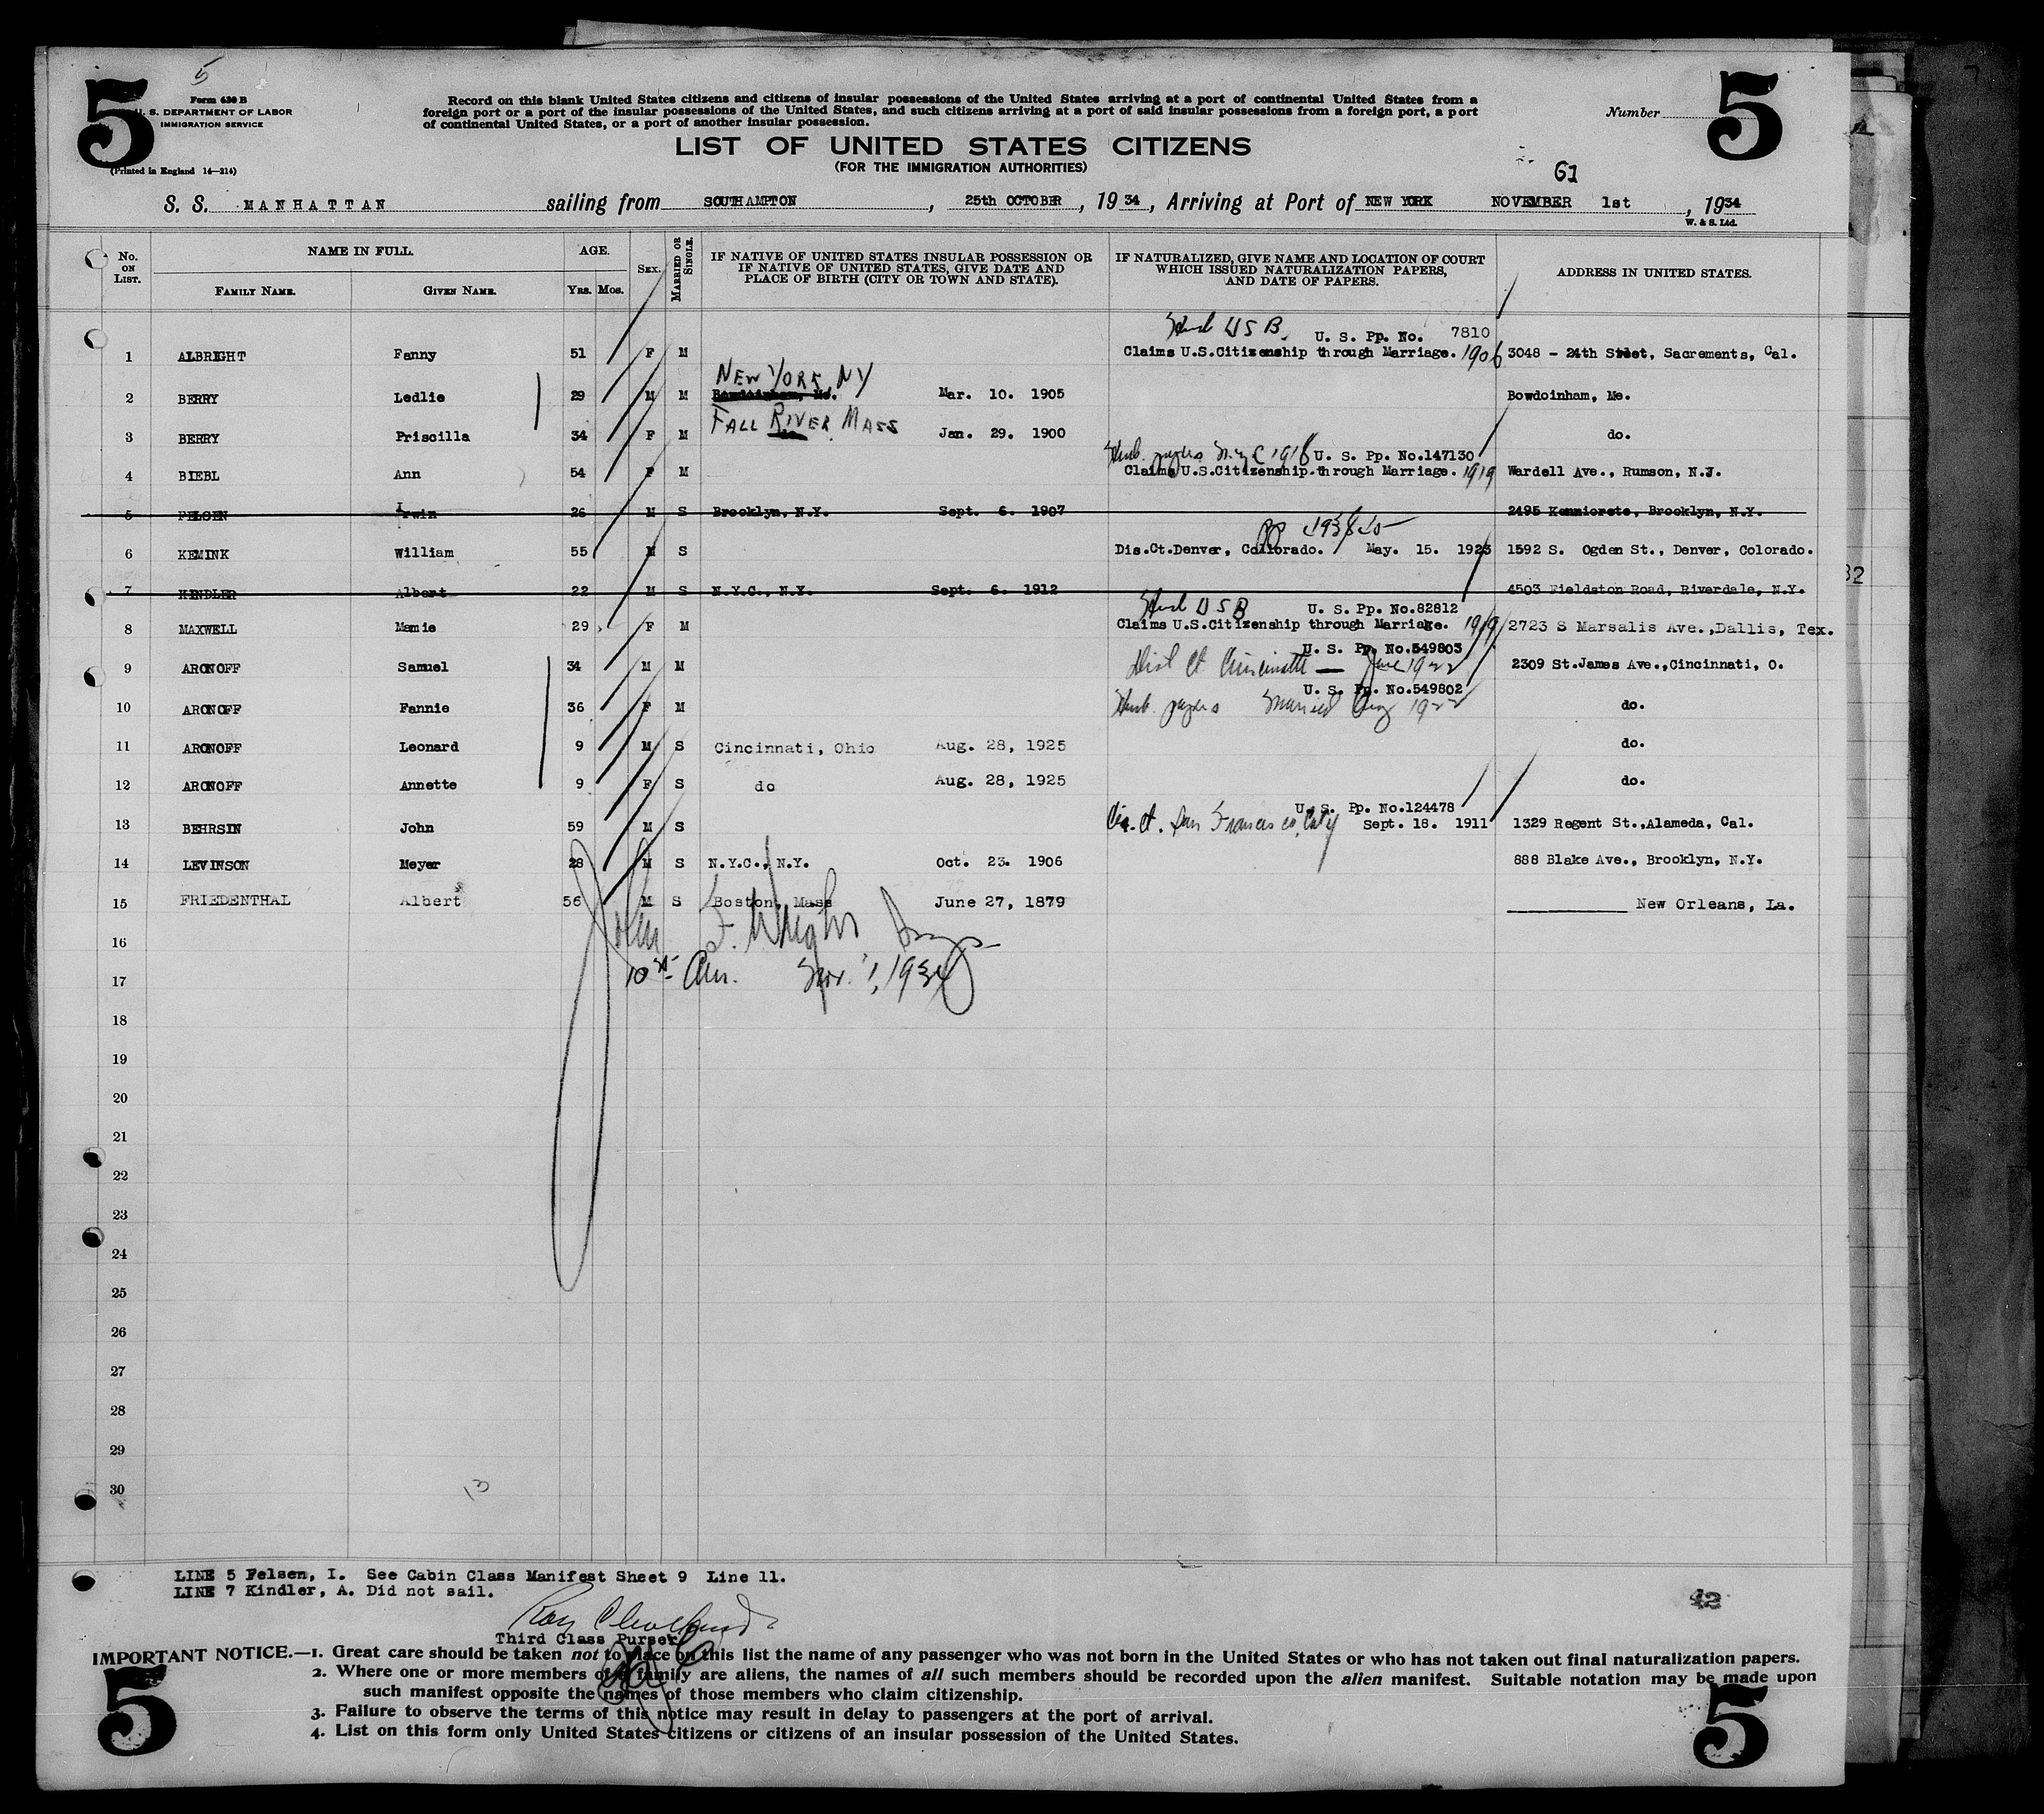 5
5
5
Form 630 B
U. S. DEPARTMENT OF LABOR
IMMIGRATION SERVICE
(Printed in England 14—214)
Record on this blank United States citizens and citizens of insular possessions of the United States arriving at a port of continental United States from a
foreign port or a port of the insular possessions of the United States, and such citizens arriving at a port of said insular possessions from a foreign port, a port
of continental United States, or a port of another insular possession.
Number
LIST OF UNITED STATES CITIZENS
(FOR THE IMMIGRATION AUTHORITIES)
G1
S. S. MANHATTAN sailing from SOUTHAMPTON, 25th OCTOBER, 1934, Arriving at Port of NEW YORK NOVEMBER 1st, 1934
W. & S. Ltd.
No. ON LIST. NAME IN FULL. FAMILY NAME. GIVEN NAME. AGE. YRS. MOS. SEX. MARRIED OR SINGLE. IF NATIVE OF UNITED STATES INSULAR POSSESSION OR IF NATIVE OF UNITED STATES, GIVE DATE AND PLACE OF BIRTH (CITY OR TOWN AND STATE). IF NATURALIZED, GIVE NAME AND LOCATION OF COURT WHICH ISSUED NATURALIZATION PAPERS, AND DATE OF PAPERS. ADDRESS IN UNITED STATES.
Husb USB. U. S. Pp. No. 7810
1 ALBRIGHT Fanny 51 F M Claims U.S.Citizenship through Marriage. 1906 3048 - 24th Street, Sacremento, Cal.
NEW YORK, NY
2 BERRY Ledlie 29 M M Bowdoinham, Me. Mar. 10. 1905 Bowdoinham, Me.
FALL RIVER MASS
3 BERRY Priscilla 34 F M do. Jan. 29. 1900 do.
Husb. papers N.Y.C 1916 U. S. Pp. No.147130
4 BIEBL Ann 54 F M Claims U.S.Citizenship through Marriage. 1919 Wardell Ave., Rumson, N.J.
5 FELSEN Irwin 26 M S Brooklyn, N.Y. Sept. 6. 1907 2495 Kenniorete, Brooklyn, N.Y.
PP
6 KEMINK William 55 M S Dis.Ct.Denver, Collorado. May. 15. 1923 1592 S. Ogden St., Denver, Colorado.
7 KINDLER Albert 22 M S N.Y.C., N.Y. Sept. 6. 1912 4503 Fieldston Road, Riverdale, N.Y.
Husb USB U. S. Pp. No.82812
8 MAXWELL Mamie 29 F M Claims U.S.Citizenship through Marriage. 1919 2723 S Marsalis Ave.,Dallis, Tex.
U. S. Pp. No.549803
9 ARONOFF Samuel 34 M M Dist Ct Cincinnati — June 1922 2309 St.James Ave.,Cincinnati, O.
U. S. Pp. No.549802
10 ARONOFF Fannie 36 F M Husb. papers Married Aug 1922 do.
11 ARONOFF Leonard 9 M S Cincinnati, Ohio Aug. 28, 1925 do.
12 ARONOFF Annette 9 F S do Aug. 28, 1925 do.
U. S. Pp. No.124478
13 BEHRSIN John 59 M S Cir. Ct. San Francisco, City Sept. 18. 1911 1329 Regent St.,Alameda, Cal.
14 LEVINSON Meyer 28 M S N.Y.C., N.Y. Oct. 23. 1906 888 Blake Ave., Brooklyn, N.Y.
15 FRIEDENTHAL Albert 56 M S Boston, Mass June 27, 1879 New Orleans, La.
16 John F. Wright Insp
17 Nov. 1, 1934
18
19
20
21
22
23
24
25
26
27
28
29
30
13
32
LINE 5 Felsen, I. See Cabin Class Manifest Sheet 9 Line 11.
LINE 7 Kindler, A. Did not sail.
42
Roy Cleveland
Third Class Purser
IMPORTANT NOTICE.—1. Great care should be taken not to place on this list the name of any passenger who was not born in the United States or who has not taken out final naturalization papers.
2. Where one or more members of a family are aliens, the names of all such members should be recorded upon the alien manifest. Suitable notation may be made upon
such manifest opposite the names of those members who claim citizenship.
3. Failure to observe the terms of this notice may result in delay to passengers at the port of arrival.
4. List on this form only United States citizens or citizens of an insular possession of the United States.
5
5